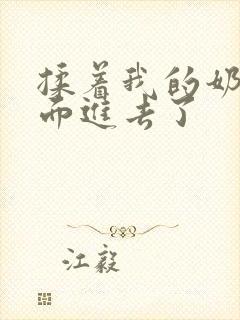 揉着我的奶
而进去了
江毅